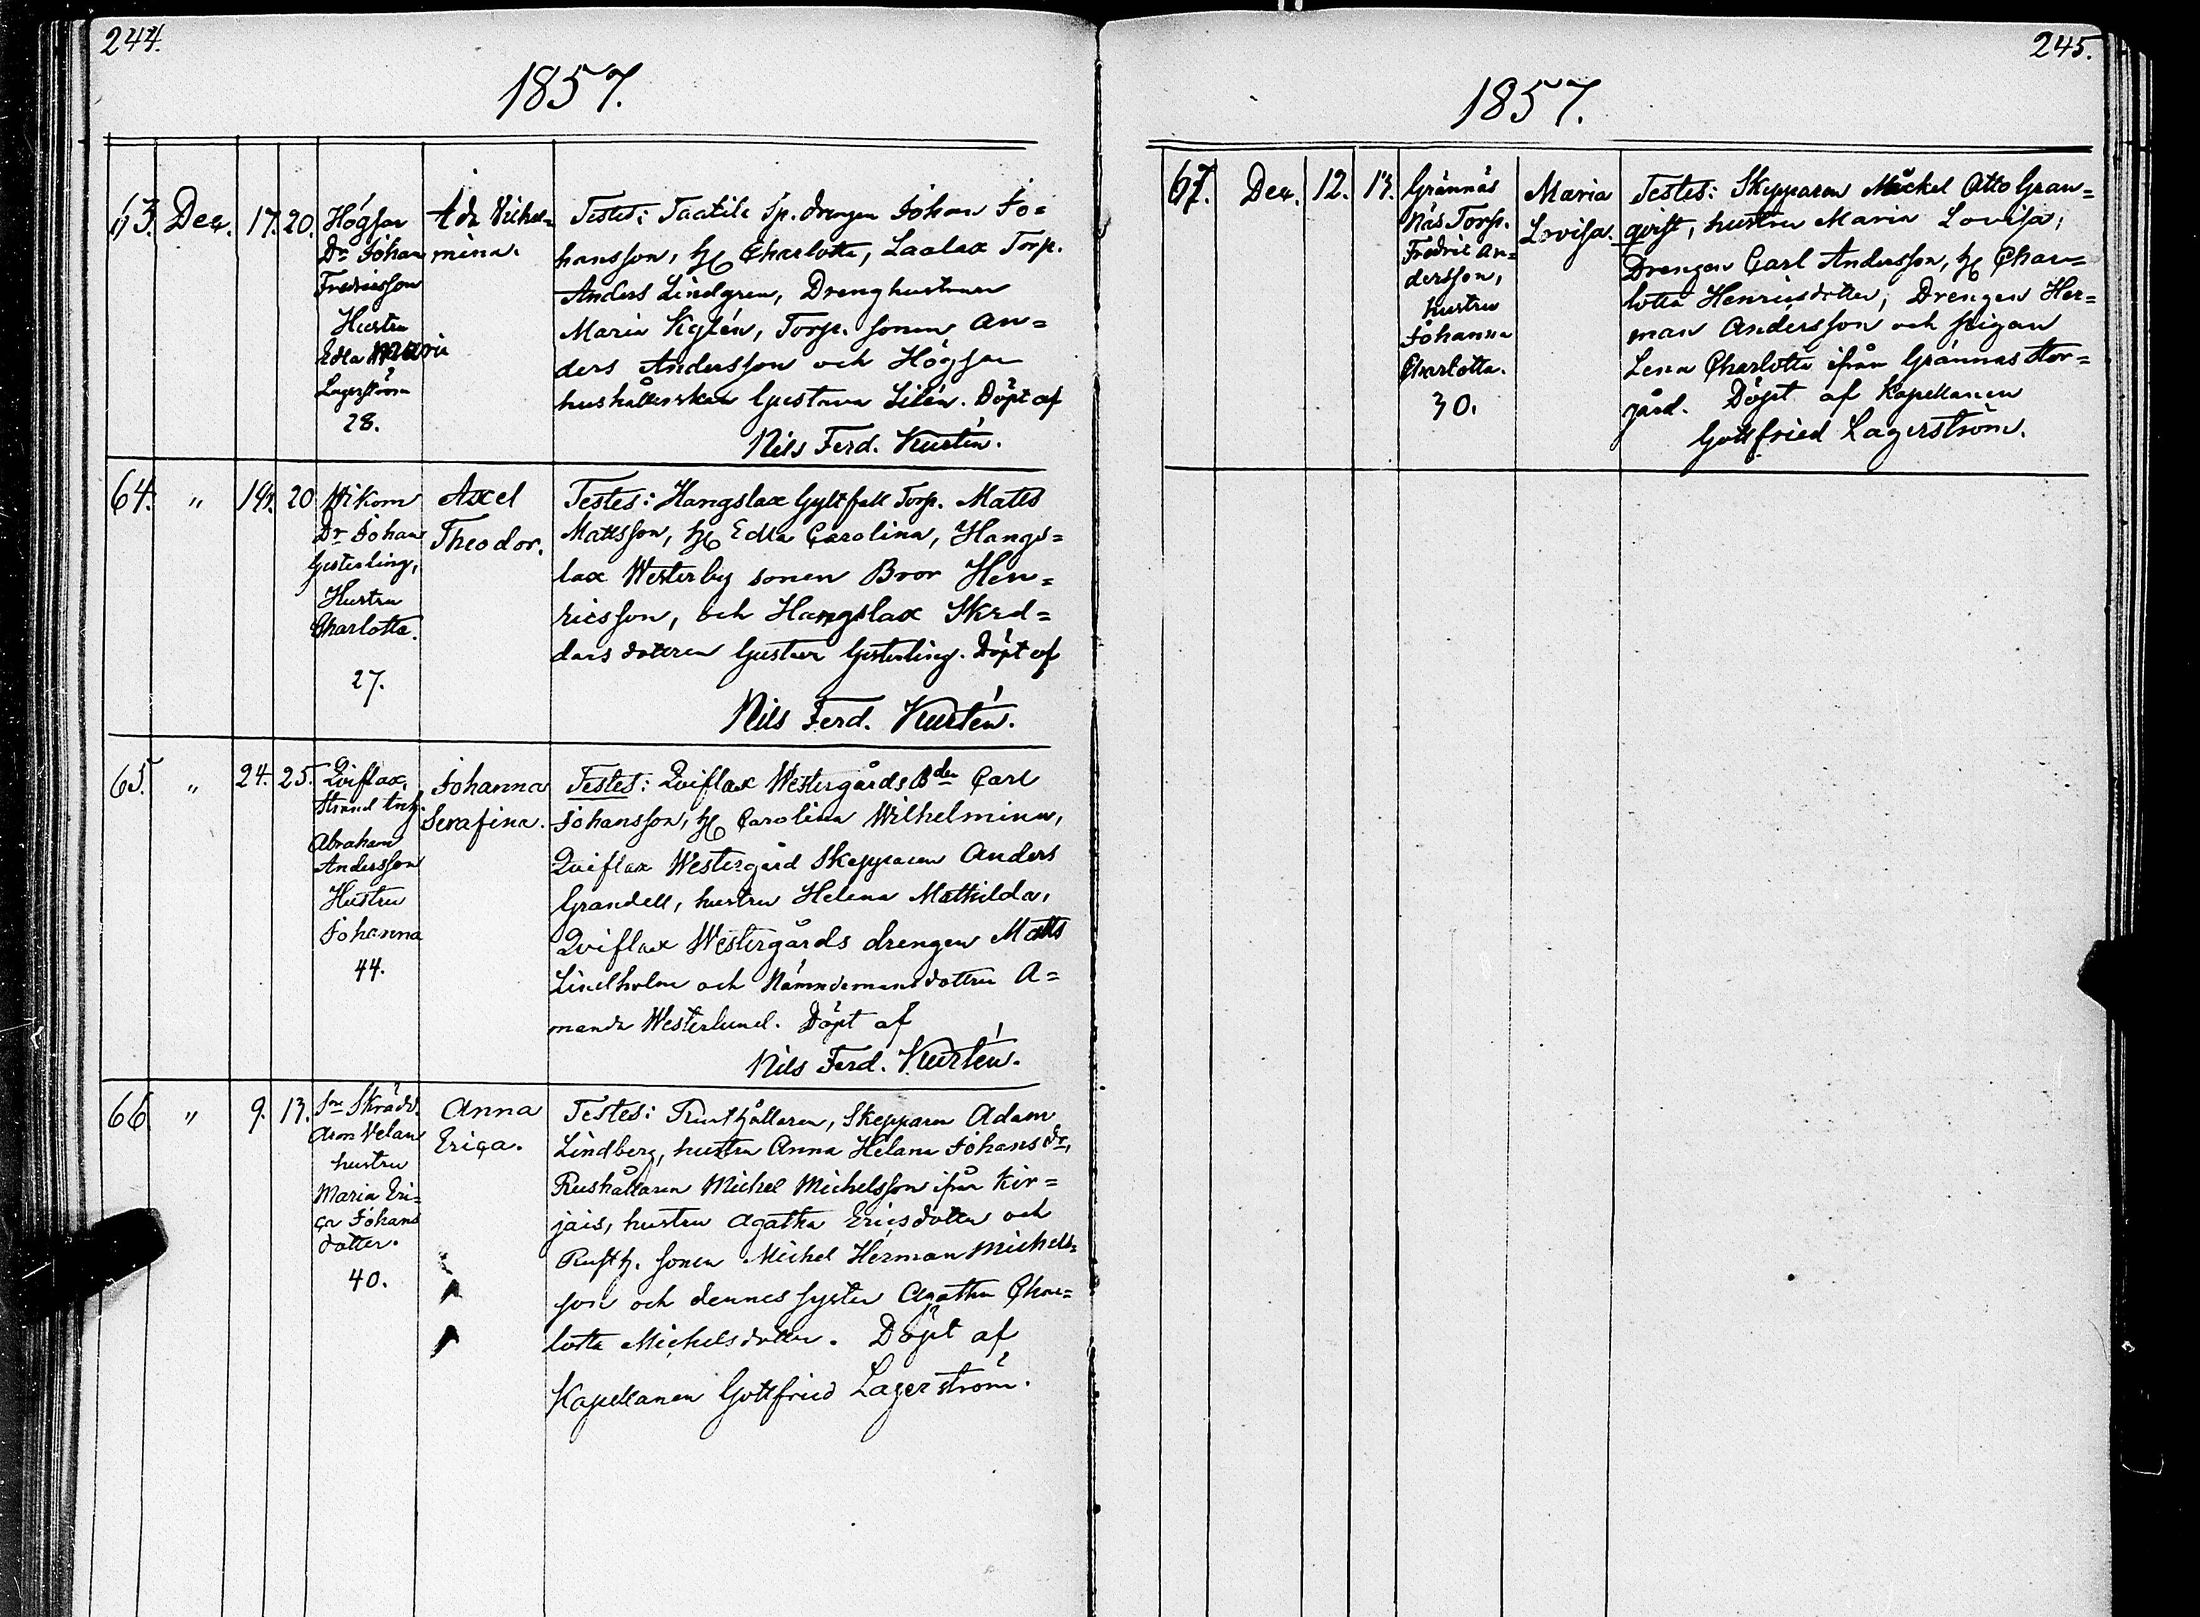 244.
1857.
63. Dec. 17. 20.
Högsar
Dr Johan
Fredricsson
Hustru
Edla Maria
Lagerström
28.
Ada Vilhel=
mina.
Testes: Taatila Sp. drengen Johan Jo=
hansson, h. Charlotta, Laalax Torp.
Anders Lindgren, Drenghustrun
Maria Kylén, Torp. sonen An=
ders Andersson och Högsar
hushållerskan Gustava Silén. Döpt af
Nils Ferd. Kurtén.
64. " 19. 20
Wikom
Dr Johan
Gesterling,
Hustru
Charlotta.
27.
Axel
Theodor.
Testes: Hangslax Gyltfall Torp. Matts
Mattsson, h. Edla Carolina, Hangs=
lax Westerby sonen Bror Hen=
ricsson, och Hangslax Skräd=
dars dottren Gustava Gesterling. Döpt af
Nils Ferd. Kurtén.
65. " 24. 25.
Qviflax,
Strand torp.
Abraham
Andersson
Hustru
Johanna
44.
Johanna
Serafina.
Testes: Qviflax Westergårds Bden Carl
Johansson, h. Carolina Wilhelmina,
Qviflax Westergård Skepparen Anders
Grandell, hustru Helena Mathilda,
Qviflax Westergårds drengen Matts
Lindholm och Nämndemansdottren A=
manda Westerlund. Döpt af
Nils Ferd. Kurtén.
66 " 9. 13.
Skrädd.
Aron Velan
hustru
Maria Eri=
ca Johans
dotter.
40.
Anna
Erica.
Testes: Rusthållaren, Skepparen Adam
Lindberg, hustru Anna Helena Johans dr,
Rushållaren Michel Michelsson ifrån Kir=
jais, hustru Agatha Ericsdotter och
Rusth. sonen Michel Herman Michels=
son och dennes syster Agatha Char=
lotta Michelsdotter. Döpt af
Kapellanen Gottfried Lagerström.
245.
1857.
67. Dec. 12. 13.
Grännäs
Näs Torp.
Fredric An=
dersson,
hustru
Johanna
Charlotta.
30.
Maria
Lovisa.
Testes: Skepparen Mickel Otto Gran=
qvist, hustru Maria Lovisa,
Drengen Carl Andersson, h. Char=
lotta Henricsdotter, Drengen Her=
man Andersson och pigan
Lena Charlotta ifrån Grännas Stor=
gård. Döpt af Kapellanen
Gottfried Lagerström.